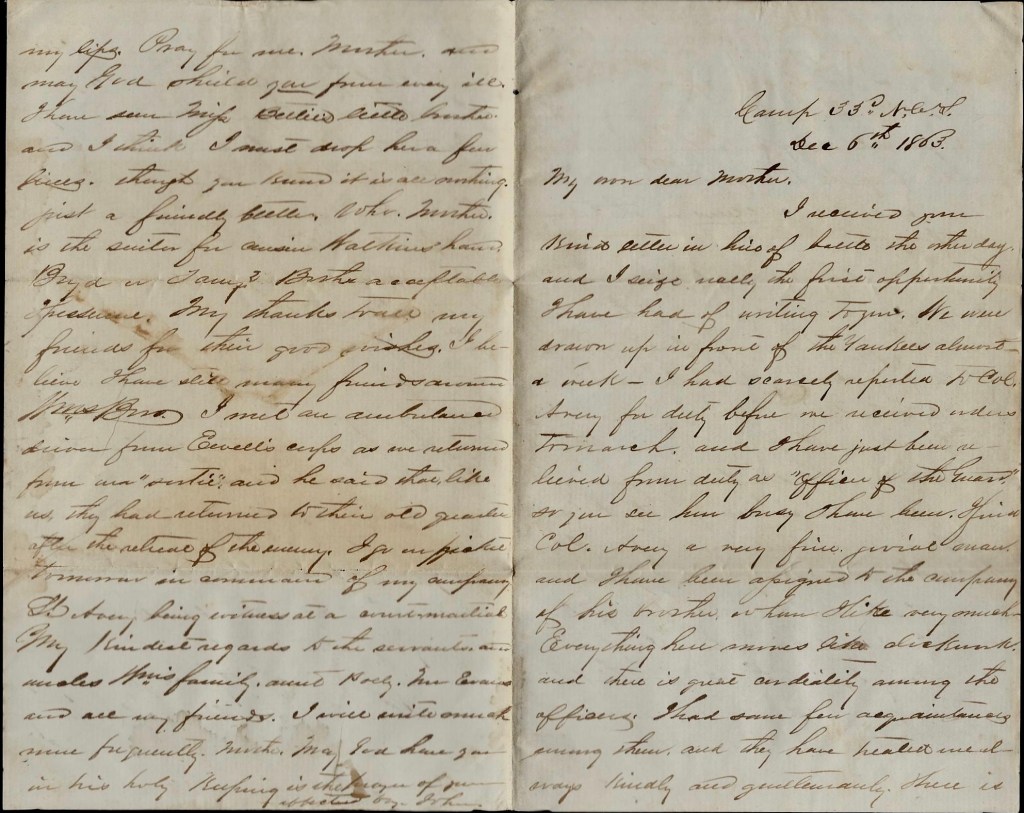 Camp 33d N.C.T.
Dec 6th 1863.
My own dear Mother.
I received your
kind letter in lieu of battle the other day.
and I seize really the first opportunity
I have had of writing to you. We were
drawn up in front of the Yankees almost
a week - I had scarcely reported to Col.
Avery for duty before we received orders
to march. and I have just been re
lieved from duty as "officer of the Guard,"
so you see how busy I have been. I find
Col. Avery a very fine, jovial man.
and I have been assigned to the company
of his brother, whom I like very much.
Everything here moves like clockwork.
and there is great cordiality among the
officers. I had some few acquaintances
among them, and they have treated me al-
ways kindly and gentlemanly. There is
my lips. Pray for me. Mother. and
may God shield you from every ill.
I have seen Miss brother.
and I think I must drop her a few
lines. though you mind it is all nothing.
just a friendly letter. Who. Mother.
is the suitor for cousin hand
Boyd or Both acceptable
I presume. My thanks to all my
friends for their good wishes. I be-
lieve I have still many friends around
I met an ambulance
driver from Ewell's corps as we returned
from our "sortie", and he said that, like
us, they had returned to their old quarters
after the retreat of the enemy. I go on picket
tomorrow in command of my company
Lt Avery being witness at a court-martial
My kindest regards to the servants. and
uncles Wms family. aunt Mr Evans
and all my friends. I will write much
more frequently. Mother. May God have you
in his holy keeping is the prayer of your
affected boy. John